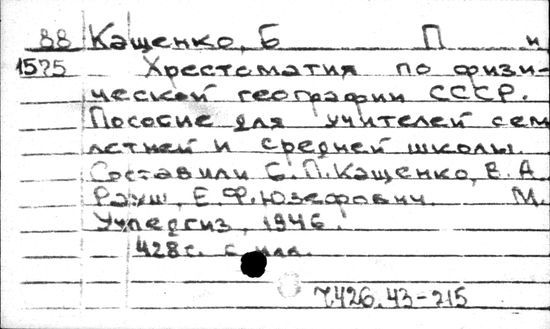 88 Кащенко, Б П и
1575 Хрестоматия по физи-
ческой географии СССР.
Пособие для учителей сем
летней и средней школы.
Составили Б.П.Кащенко, В.А.
Рауш, Е.Ф.Юзефович. М.
Учпедгиз, 1946.
428 с. с илл.
7426.43-215